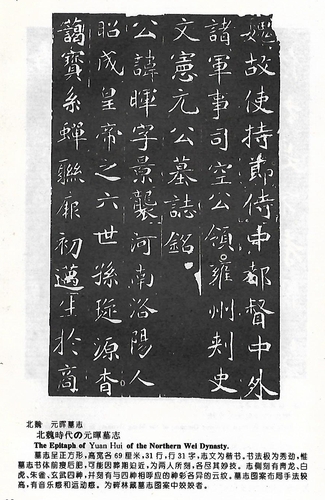 魏故使持節侍中都督中外
諸軍事司空公領雍州刾史
文憲元公墓誌銘
公諱暉字景襲河南洛陽人
昭成皇帝之六世孫琁源杳
藹寶系蟬聯厥初邁生於商
北魏 元晖墓志
北魏時代の元暉墓志
The Epitaph of Yuan Hui of the Northern Wei Dynasty.
墓志呈正方形，高宽各69厘米，31行，行31字，志文为楷书，书法极为秀劲，惟
墓志书体前瘦后肥，可能因葬期迫近，为两人所刻，各尽其妙技。志侧刻有青龙、白
虎、朱雀、玄武四神，并刻有与四种相呼应的神彩各异的云纹，墓志图案布局手法较
高，有音乐感和运动感，为碑林藏墓志图案中姣姣者。